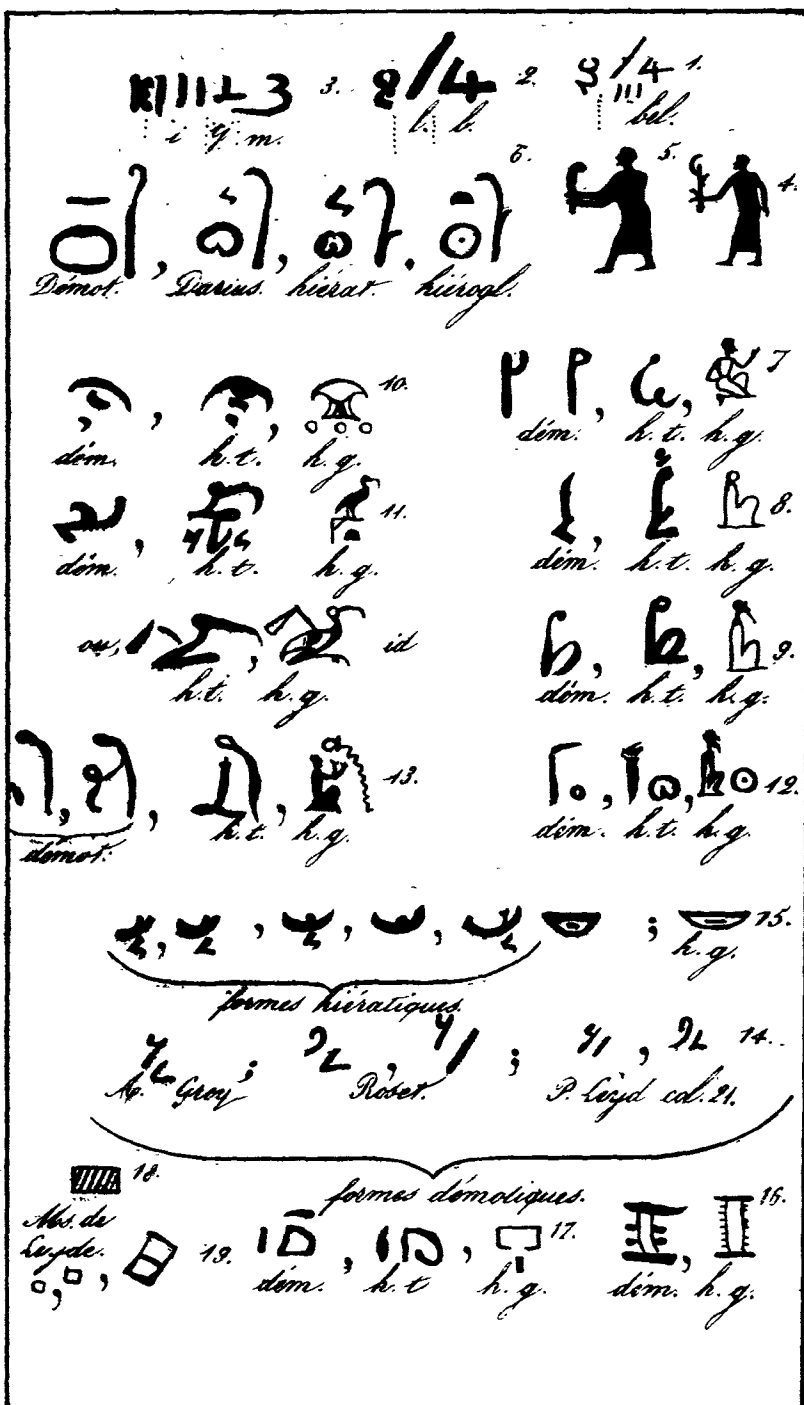 3. 2. 1.
i g m. l. b. bel.
6. 5. 4.
Démot. Darius. hiérat. hiérogl.
10. 7
dém. h.t. h.g. dém. h.t. h.g.
11. 8.
dém. h.t. h.g. dém. h.t. h.g.
ou, id 9.
h.t. h.g. dém. h.t. h.g.
13. 12.
démot. h.t. h.g. dém. h.t. h.g.
15.
h.g.
formes hiératiques.
14.
Grey Roset. P. Leyd col. 21.
formes démotiques.
18. 16.
Ms. de
Leyde. 19. 17.
dém. h.t h.g. dém. h.g.